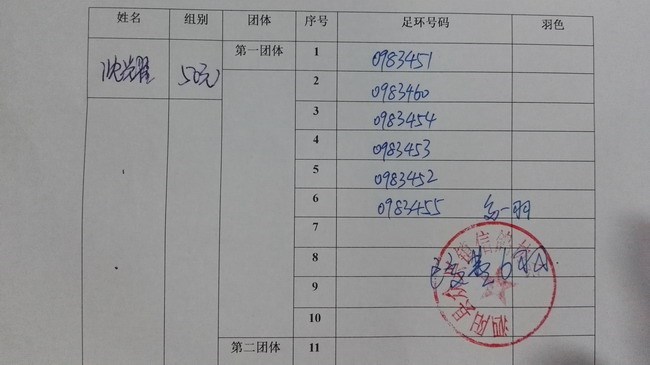 姓名 组别 团体 序号 足环号码 羽色
沈岩耀 50元 第一团体 1 0983451
2 0983460
3 0983454
4 0983453
5 0983452
6 0983455
7
8
9
10
第二团体 11